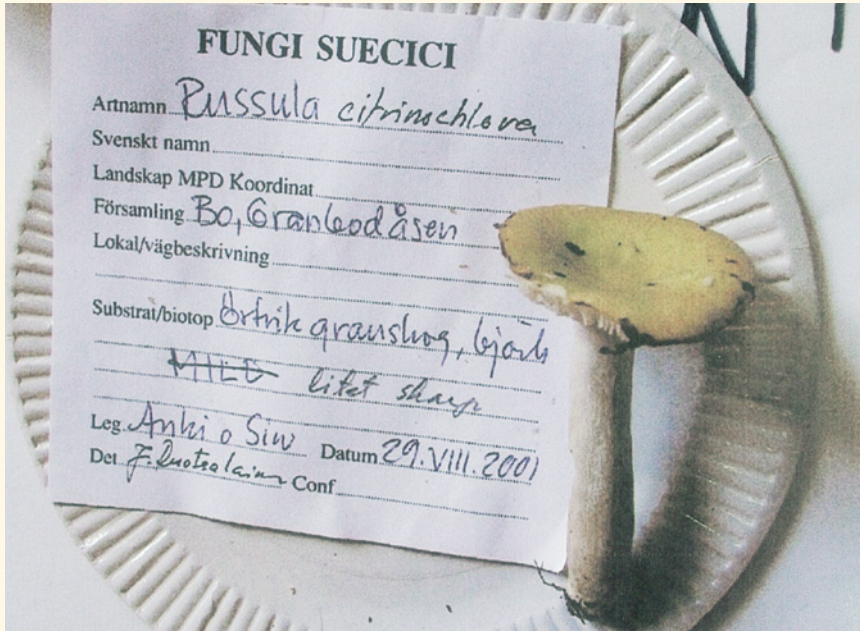 FUNGI SUECICI
Artnamn Russula citrinochlora
Svenskt namn
Landskap MPD Koordinat
Församling Bo, Granbodåsen
Lokal/vägbeskrivning
Substrat/biotop Örtrik granskog, björk
MILD litet skarp
Leg. Anki o Siw Datum 29.VIII.2001
Det J. Ruotsalainen Conf